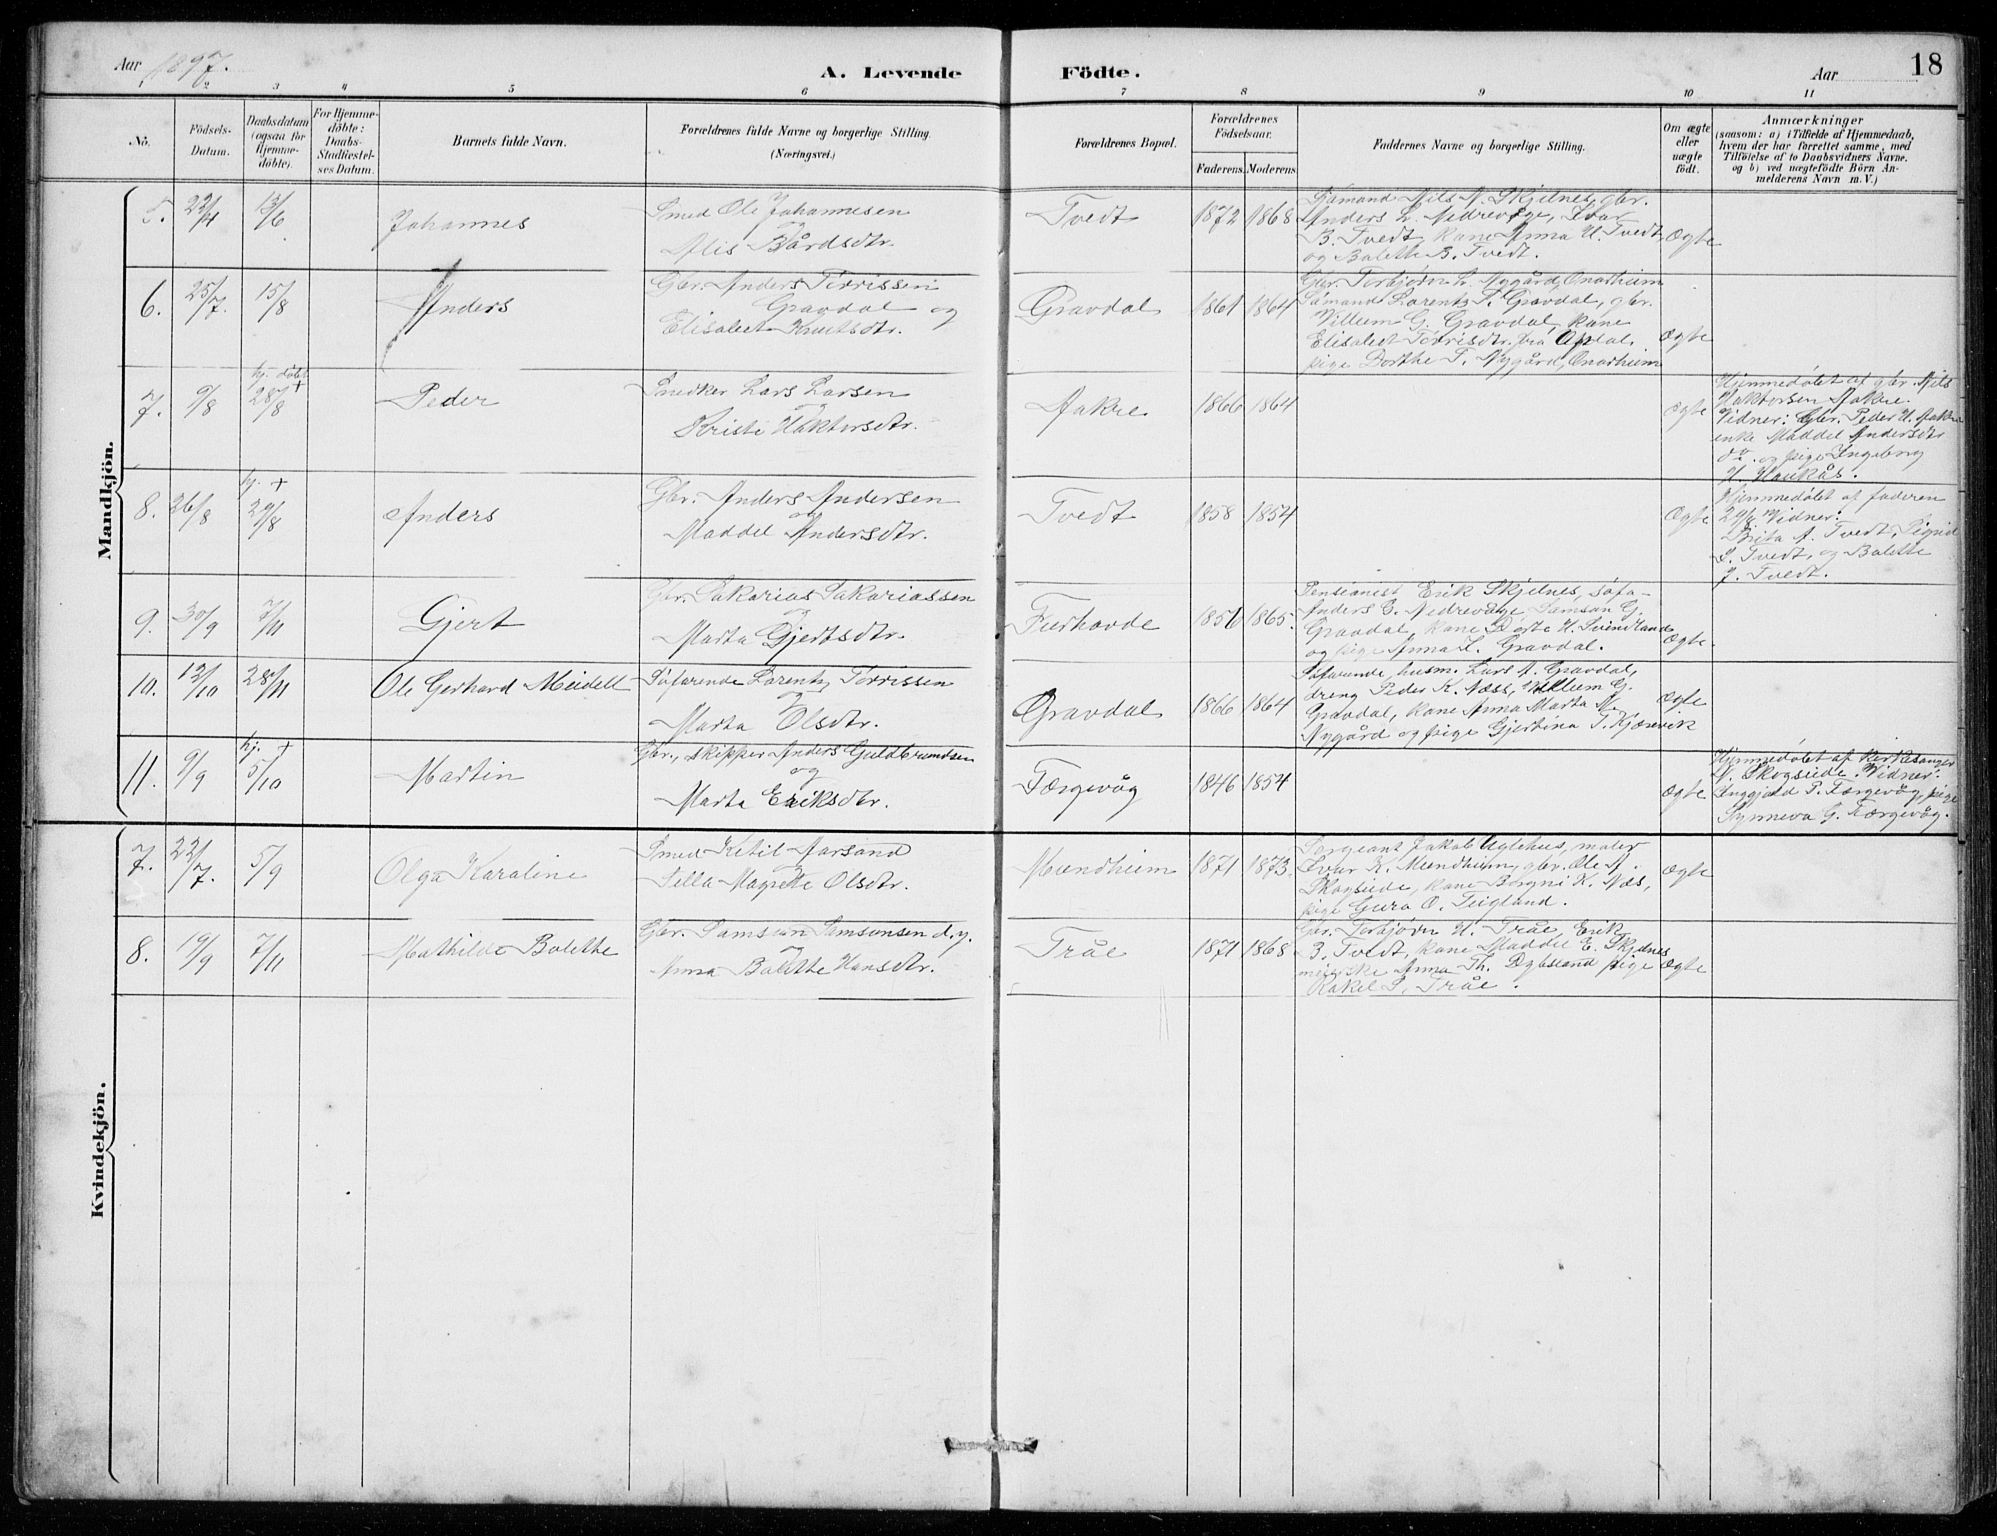 Aar 1897.
A. Levende Födte.
Aar
18
1 2 3 4 5 6 7 8 9 10 11
No.
Födsels-Datum.
Daabsdatum (ogsaa for Hjemme-döbte).
For Hjemme-döbte: Daabs-Stadfæstel-ses Datum.
Barnets fulde Navn.
Forældrenes fulde Navne og borgerlige Stilling. (Næringsvei.)
Forældrenes Bopæl.
Forældrenes Födselsaar.
Faderens. Moderens.
Faddernes Navne og borgerlige Stilling.
Om ægte eller uægte födt.
Anmærkninger
(saasom: a) i Tilfælde af Hjemmedaab,
hvem der har forrettet samme, med
Tilföielse af to Daabsvidners Navne.
og b) ved uægtefödte Börn An-
melderens Navn m. V.)
Mandkjön.
5. 22/4 13/6 Johannes
Smed Ole Johannesen
og
Alis Bårdsdtr.
Tvedt 1872 1868
Sömand Nils A. Skjelnes, gbr.
Anders L. Nedrevåge, Ivar
B. Tvedt, kone Anna H. Tvedt,
og Bolette B. Tvedt.
Ægte
6. 25/7. 15/8 Anders
Gbr. Anders Törrissen
Gravdal og
Elisabet Knutsdtr.
Gravdal 1861 1864
Gbr. Torbjørn L. Nygård, Onarheim
Sömand Lorentz T. Gravdal, gbr.
Villum G. Gravdal, kone
Elisabet Törrisdtr. fra
pige Dorthe T. Nygård, Onarheim
Ægte
7. 9/8 hj. döbt 28/8 + Peder
Snedker Lars Larsen
og
Kristi Haktorsdtr.
Aakre 1866 1864
ægte
Hjemmedöbt af gbr. Nils
Haktorsen Aakre.
Vidner: Gbr. Peder H. Aakre
enke Maddel Andersdtr
do. og pige Ingeborg
H. Haukås.
8. 26/8 hj. + 29/8 Anders
Gbr. Anders Andersen
og
Maddel Andersdtr.
Tvedt 1858 1854
Ægte
Hjemmedöbt af faderen
29/8. Vidner:
Brita A. Tvedt, Sigrid
S. Tvedt, og Bolette
J. Tvedt.
9. 30/9 7/11 Gjert
Gbr. Sakarias Sakariassen
og
Marta Gjertsdtr.
Fuerhovde 1856 1865.
Pensionist Erik Skjelnes, söfa-
Anders E. Nedrevåge Samson G.
Gravdal, kone Dorte H. Svendland
og pige Anna L. Gravdal.
Ægte.
10. 12/10 28/11 Ole Gerhard Meidell
Söfarende Lorentz Törrissen
og
Marta Olsdtr.
Gravdal 1866 1864
Söfarende, husm. Lars A. Gravdal,
dreng Peder K. Næss, Villum G.
Gravdal, kone Anna Marta M.
Nygård og pige Gjertina T. Kjærevik
Ægte
11. 9/9 hj. + 5/10 Martin
Gbr., skipper Anders Guldbrandsen
og
Marta Eriksdtr.
Færgevåg 1846 1854
ægte
Hjemmedöbt af kirkesanger
N. Skogseide. Vidner:
Inggjald P. Færgevåg, pige
Synneva G. Færgevåg.
Kvindekjön.
7. 22/7. 5/9 Olga Karoline
Smed Ketil Aarsand
og
Sella Magrete Olsdtr.
Mundheim 1871 1873.
Sergeant Jakob Uglehus, maler
Ivar K. Mundheim, gbr. Ole A.
Skogseide, kone Borgni K. Næs,
pige Guro O. Teigland.
ægte
8. 19/9 7/11 Mathilde Bolette
Gbr. Samson Samsonsen d. y.
og
Anna Bolette Hansdtr.
Tråe 1871 1868
Gbr. Torbjörn H. Tråe, Erik
B. Tvedt, kone Maddel E. Skjelnes
meierske Anna Th. pige
Rakel S. Tråe.
Ægte